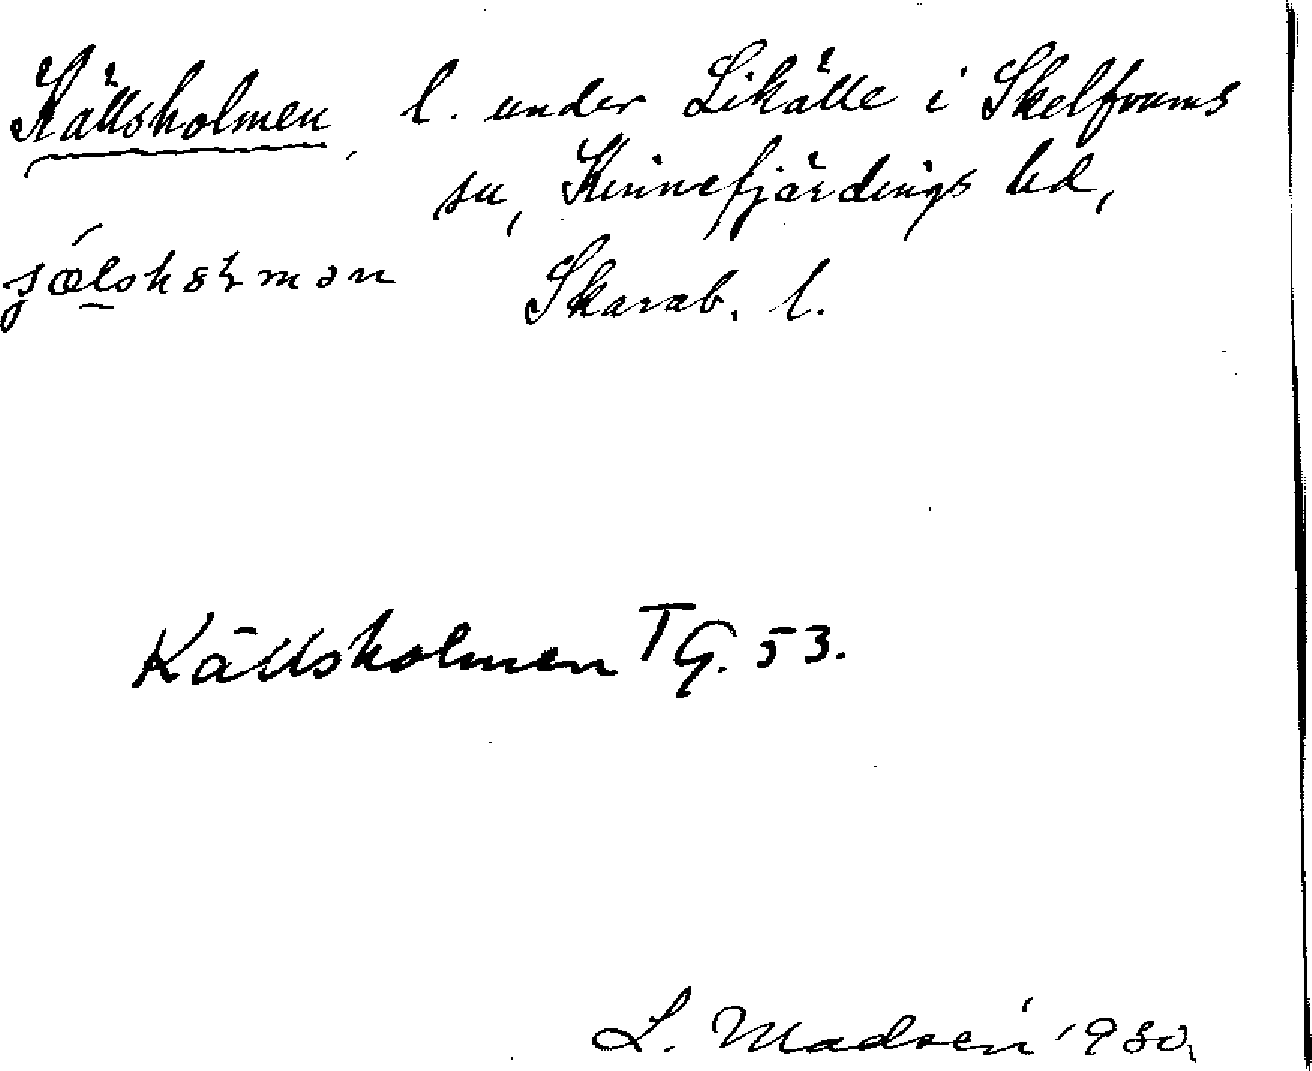 Källsholmen, l. under Likälle i Skelfvums
sn, Kinnefjärdings hd,
Skarab. l.
Källsholmen TG. 53.
L. Madsén 1930.